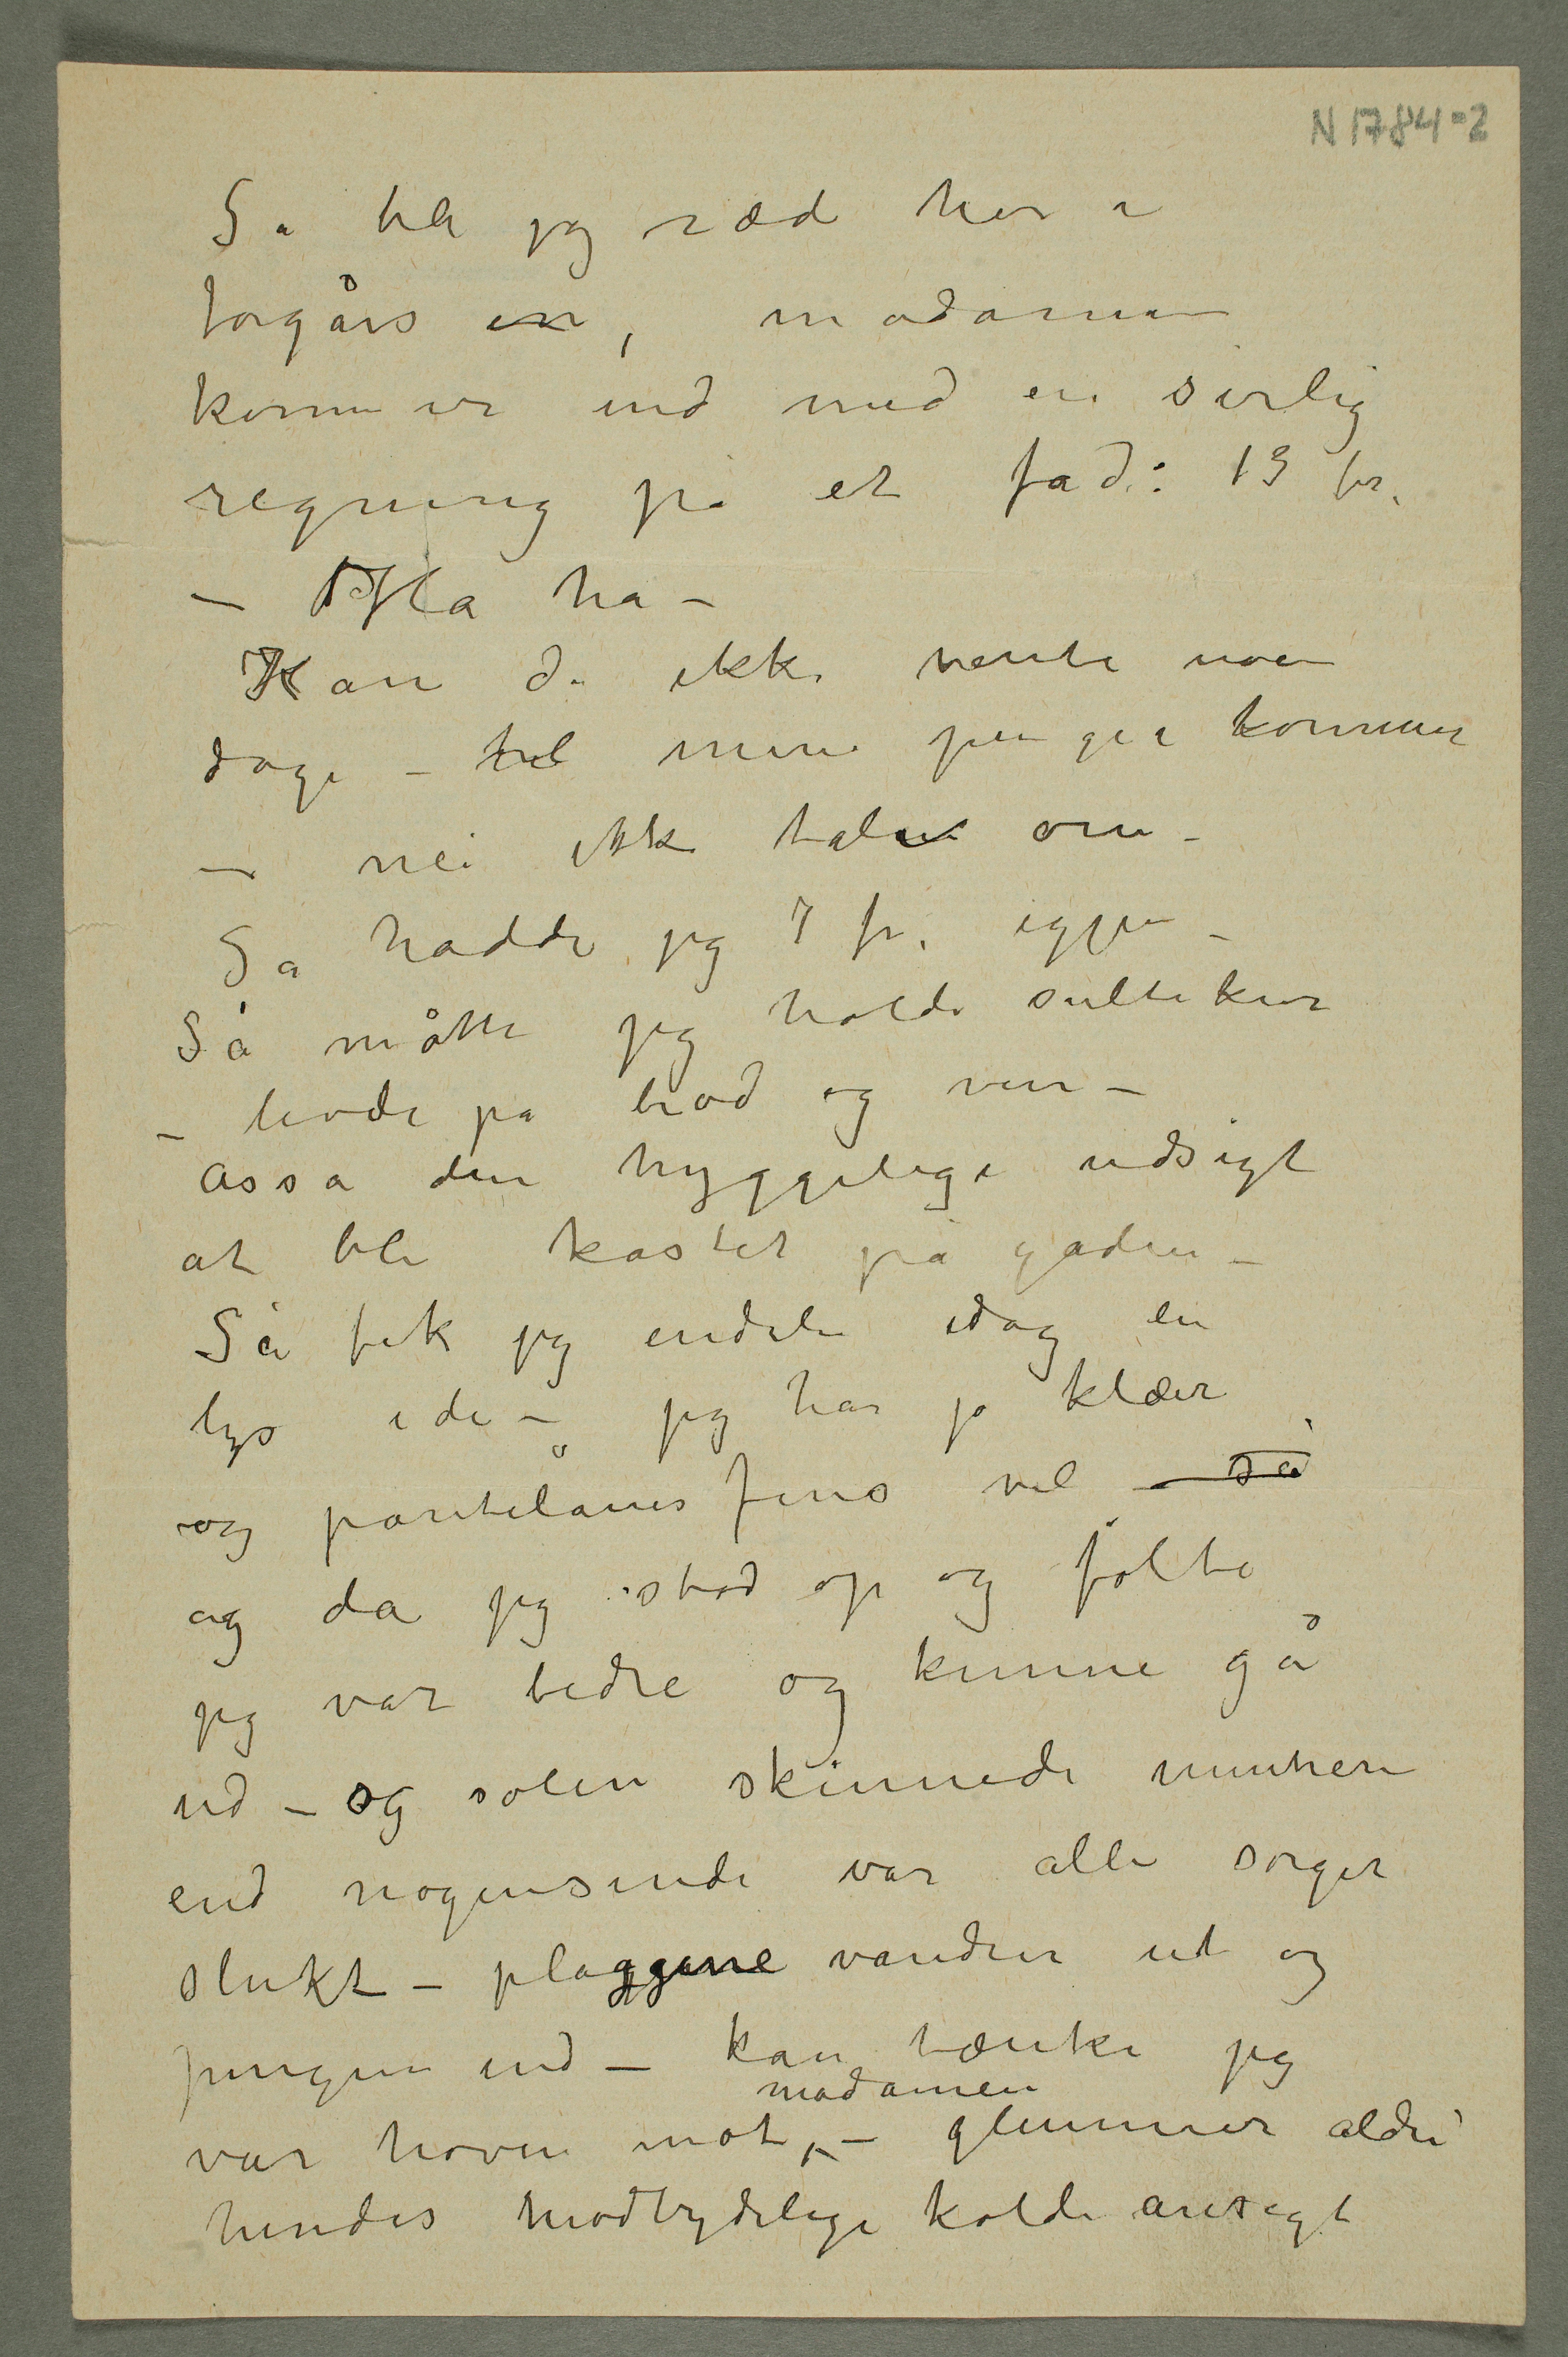 N 1784-2
Så ble jeg ræd her i
forgårs en, madamen
kommer ind med en sirlig
regning på et fad: 13 fr.
– Ha ha –
Kan De ikke vente noen
dage – til mine penger kommer
– nei ikke tale om –
Så hadde jeg 7 fr. igjen –
Så måtte jeg holde sultekur
– levde på brød og vin –
Asså den hyggelige udsigt
at bli kastet på gaden –
Så fik jeg endeli idag en
lys ide – jeg har jo klær
og pantelåner fins vel – så
og da jeg stod op og følte
jeg var bedre og kunne gå
ud – og solen skinnede muntrere
end nogensinde var alle sorger
slukt – plaggene vandrer ut og
pengene ind – kan tænke jeg
var hoven mot madamen – glemmer aldri
hendes modbydelige kolde ansigt